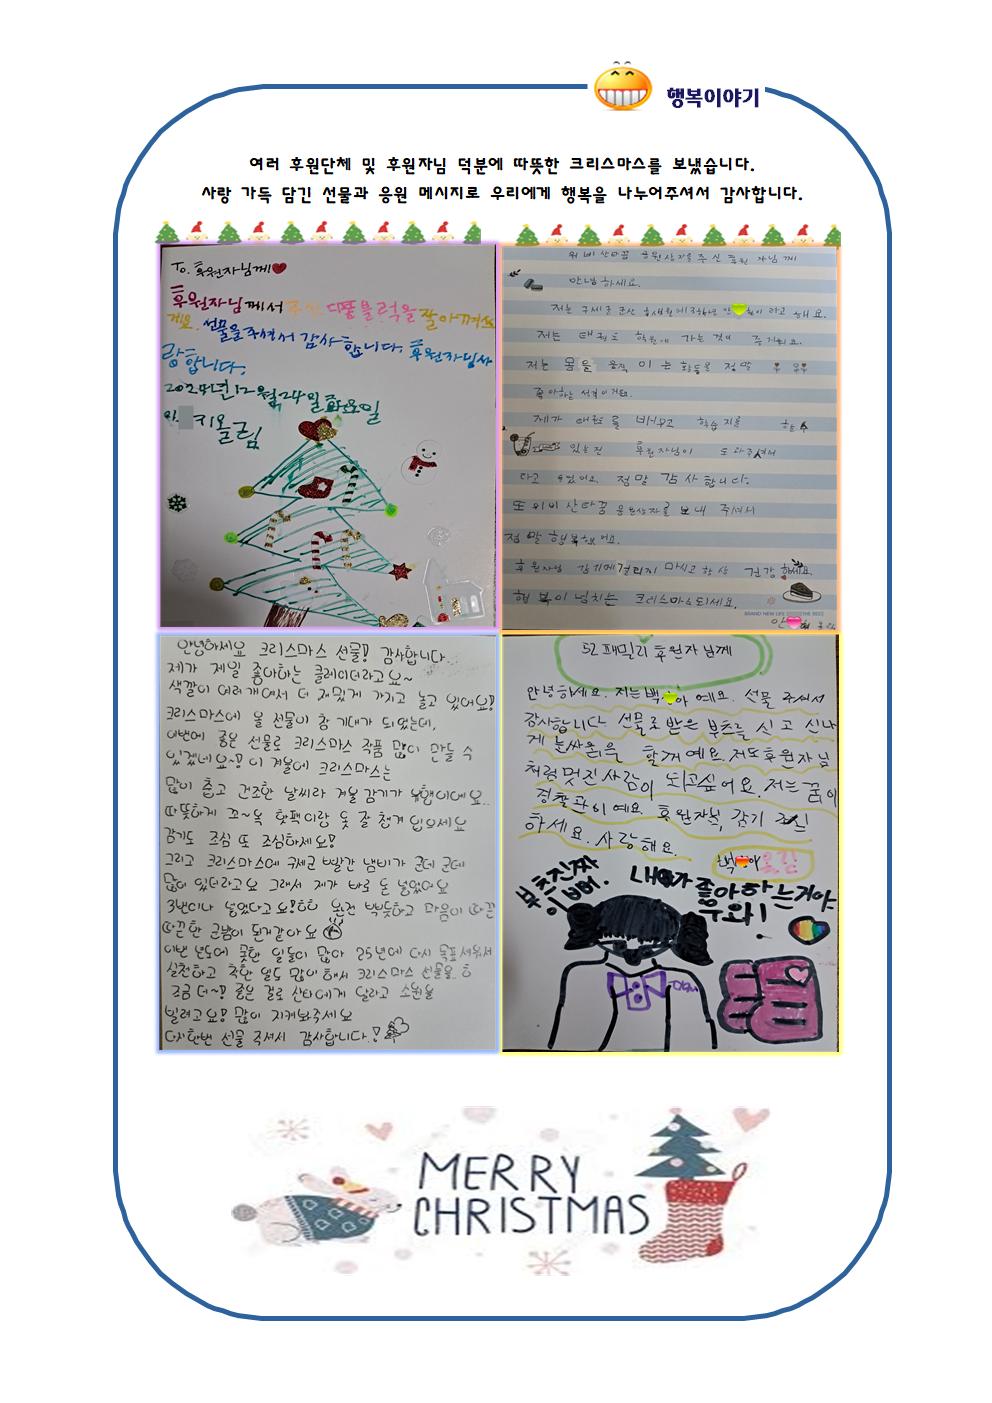 행복이야기
여러 후원단체 및 후원자님 덕분에 따뜻한 크리스마스를 보냈습니다.
사랑 가득 담긴 선물과 응원 메시지로 우리에게 행복을 나누어주셔서 감사합니다.
To. 후원자님께
후원자님께서 주신 디폼블럭을 잘 아껴쓸
게요. 선물을 주셔서 감사합니다. 후원자님 사
랑합니다.
2024년 12월 24일 화요일
올림
위비 산타꿈 응원상자를 주신 후원자님께
안녕하세요.
저는 구세군 군산 후생원에 이라고 해요.
저는 태권도 학원에 가는 것이 즐거워요.
저는 몸을 움직이는 활동을 정말
좋아하는 성격이거든요.
제가 태권도를 배우고 학습지를
있는건 후원자님이 도와주셔서
라고 정말 감사합니다.
또 위비 산타꿈 응원상자를 보내 주셔서
정말 행복했어요.
후원자님 감기에 걸리지 마시고 항상 건강하세요.
행복이 넘치는 크리스마스되세요.
BRAND NEW LIFE THE BEST
안녕하세요 크리스마스 선물! 감사합니다
제가 제일 좋아하는 클레이더라고요~
색깔이 여러개여서 더 재밌게 가지고 놀고 있어요!
크리스마스에 올 선물이 참 기대가 되었는데,
이번에 좋은 선물로 크리스마스 작품 많이 만들 수
있겠네요~! 이 겨울에 크리스마스는
많이 춥고 건조한 날씨라 겨울 감기가 유행이에요..
따뜻하게 꼬~옥 핫팩이랑 옷 잘 챙겨 입으세요
감기도 조심 또 조심하세요!
그리고 크리스마스에 구세군 빨간 냄비가 군데 군데
많이 있더라고요 그래서 제가 바로 돈 넣었어요
3번이나 넣었다고요! ㅎㅎ 완전 뿌듯하고 마음이 따끈
따끈한 군밤이 된거같아요
이번 년도에 못한 일들이 많아 25년에 다시 목표세워서
실천하고 착한 일도 많이 해서 크리스마스 선물을 ㅎ
조금 더~! 좋은 걸로 산타에게 달라고 소원을
빌려고요! 많이 지켜봐주세요
다시한번 선물 주셔서 감사합니다.!
52패밀리 후원자님께
안녕하세요. 저는 백 아 예요. 선물 주셔서
감사합니다 선물로 받은 부츠를 신고 신나
게 눈싸움을 할꺼예요. 저도 후원자님
처럼 멋진 사람이 되고싶어요. 저는 꿈이
경찰관이예요. 후원자님, 감기 조심
하세요. 사랑해요.
백 아 올림
부츠 진짜
이뻐. 내가 좋아하는거야.
우와!
MERRY
CHRISTMAS